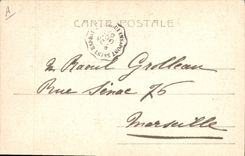 A
CARTE POSTALE
M Raoul Grolleau
Rue Sénac 76
Marseille